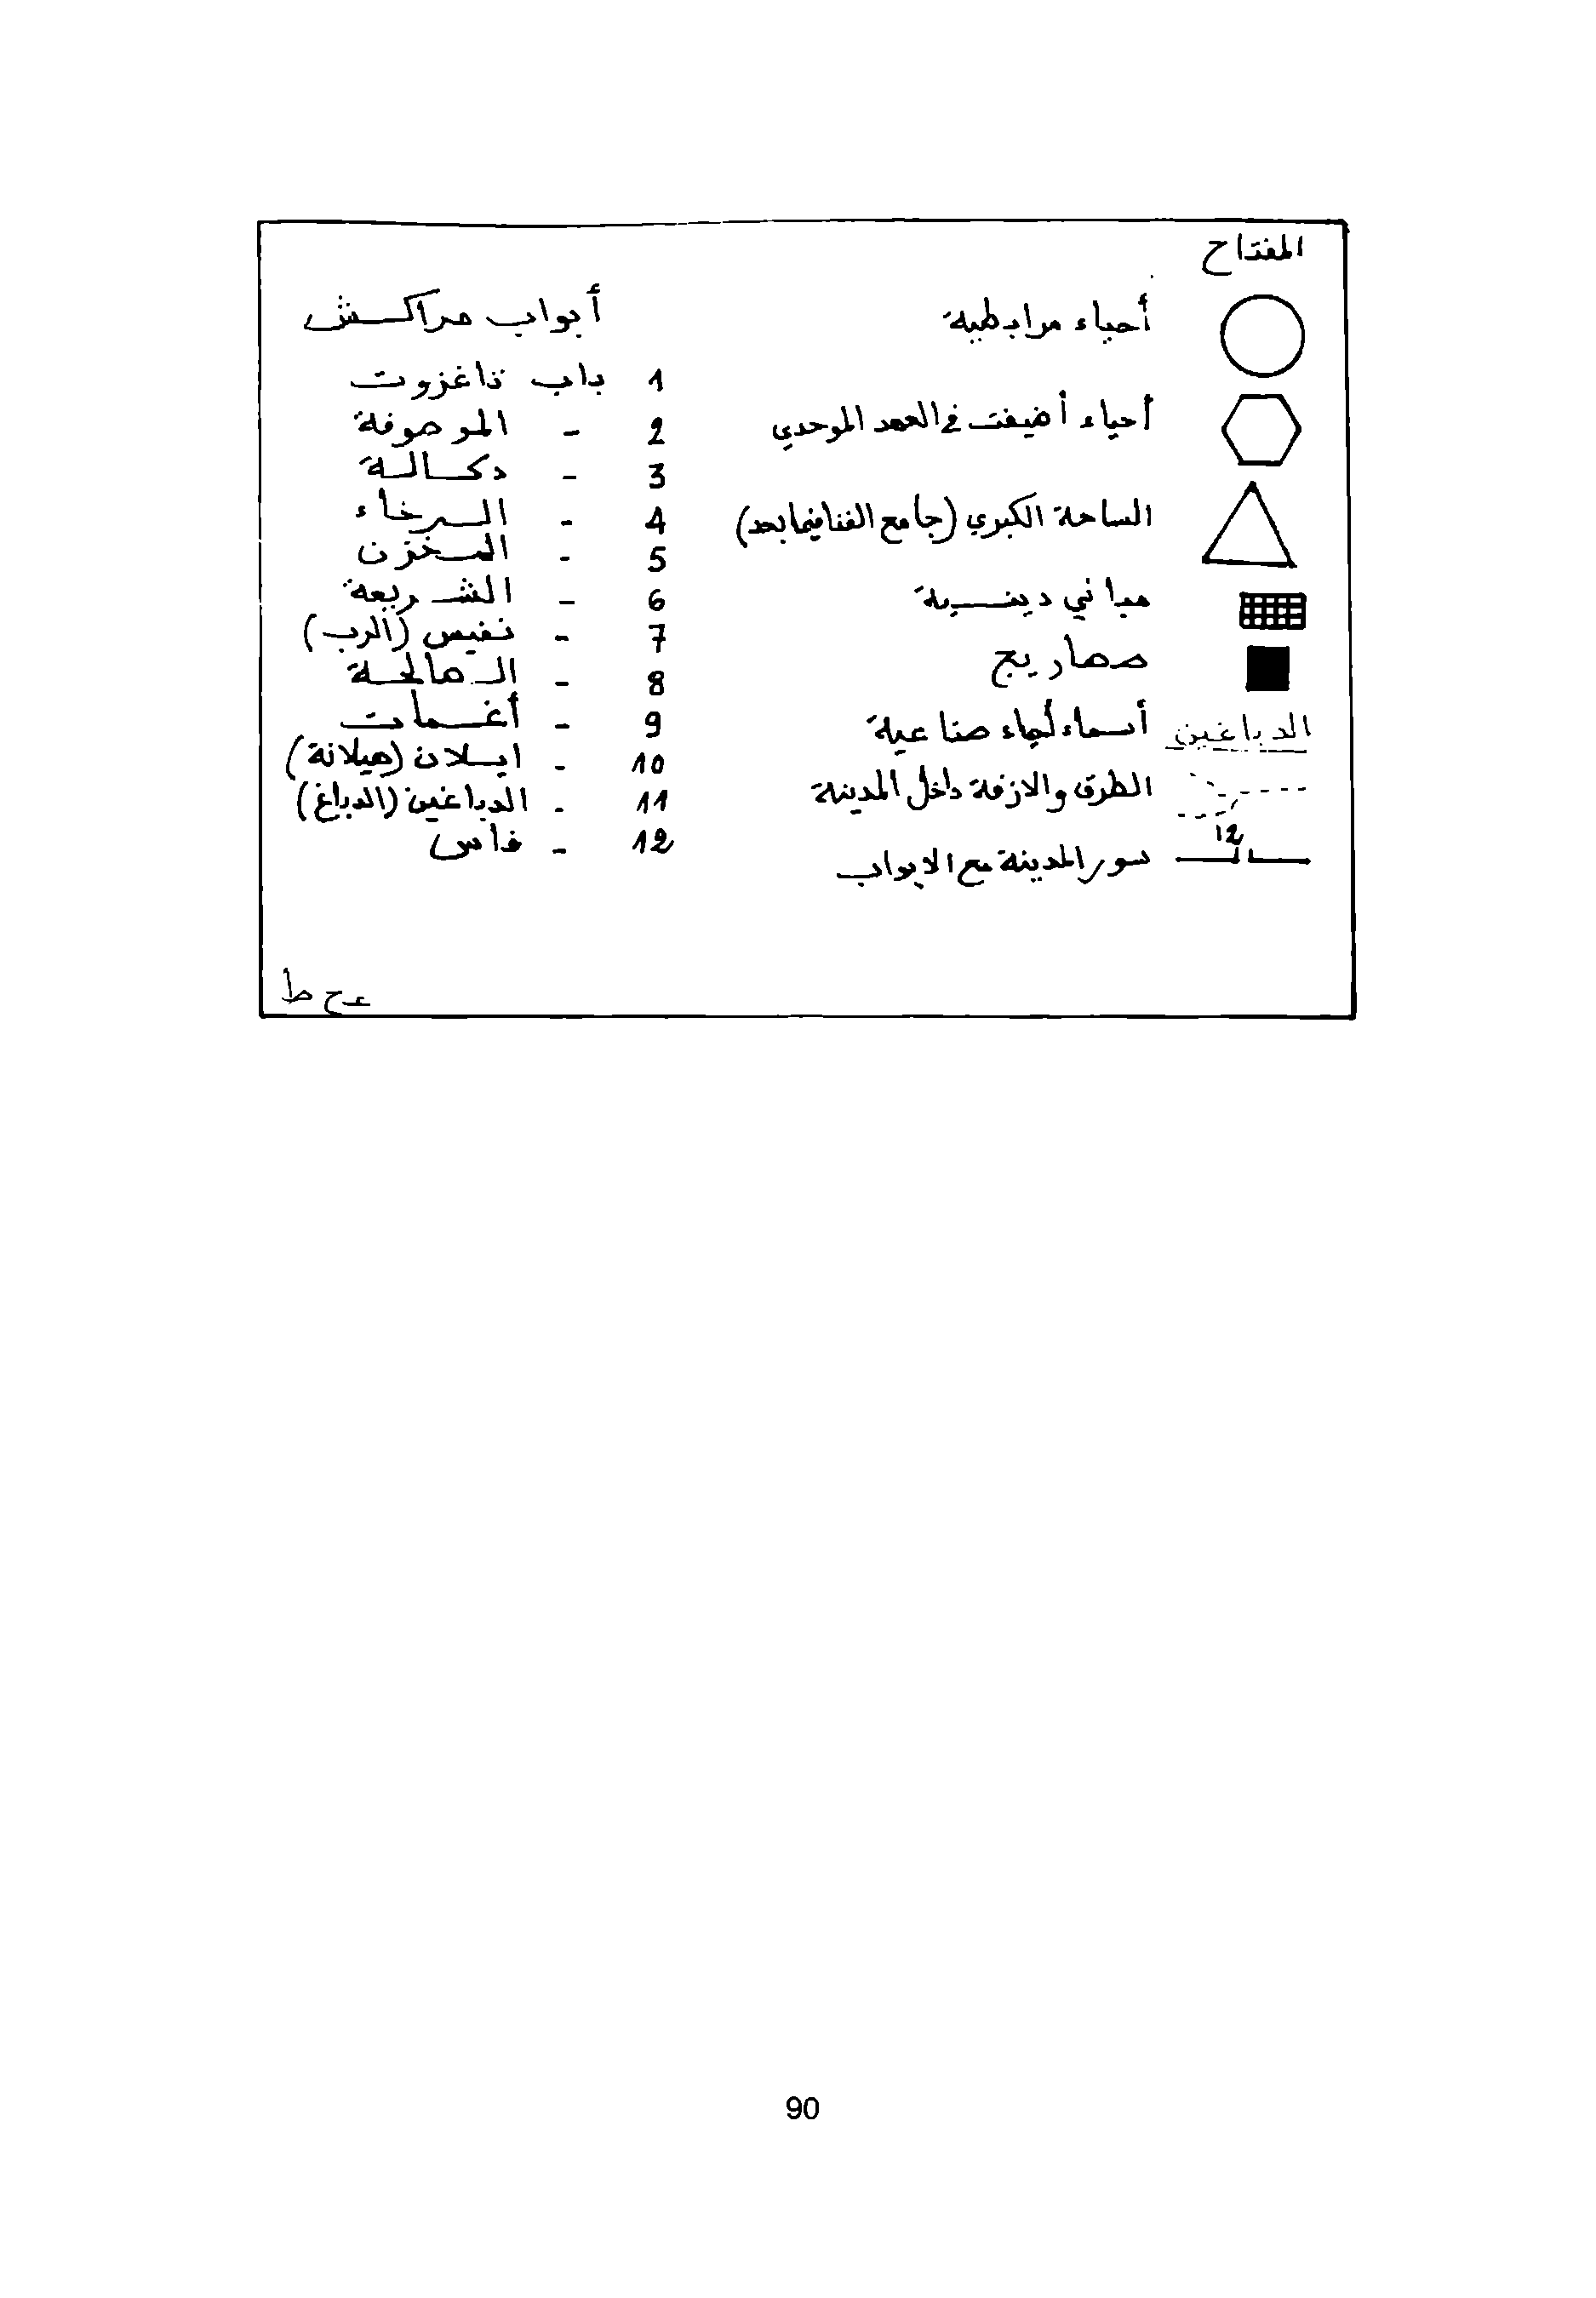 المفتاح
أحياء مرابطية
أحياء أضيفت في العهد الموحدي
الساحة الكبري (جامع الفنا فيما بعد)
مباني دينية
صهاريج
الدباغين أسماء أحياء صناعية
الطرق والازقة داخل المدينة
12
سور المدينة مع الابواب
أبواب مراكش
1 باب تاغزوت
2 - الموصوفة
3 - دكالة
4 - الرخاء
5 - المخزن
6 - الشريعة
7 - نفيس (الرب)
8 - الصالحة
9 - أغمات
10 - ايلان (هيلانة)
11 - الدباغين (الدباغ)
12 - فاس
ع ح ط
90